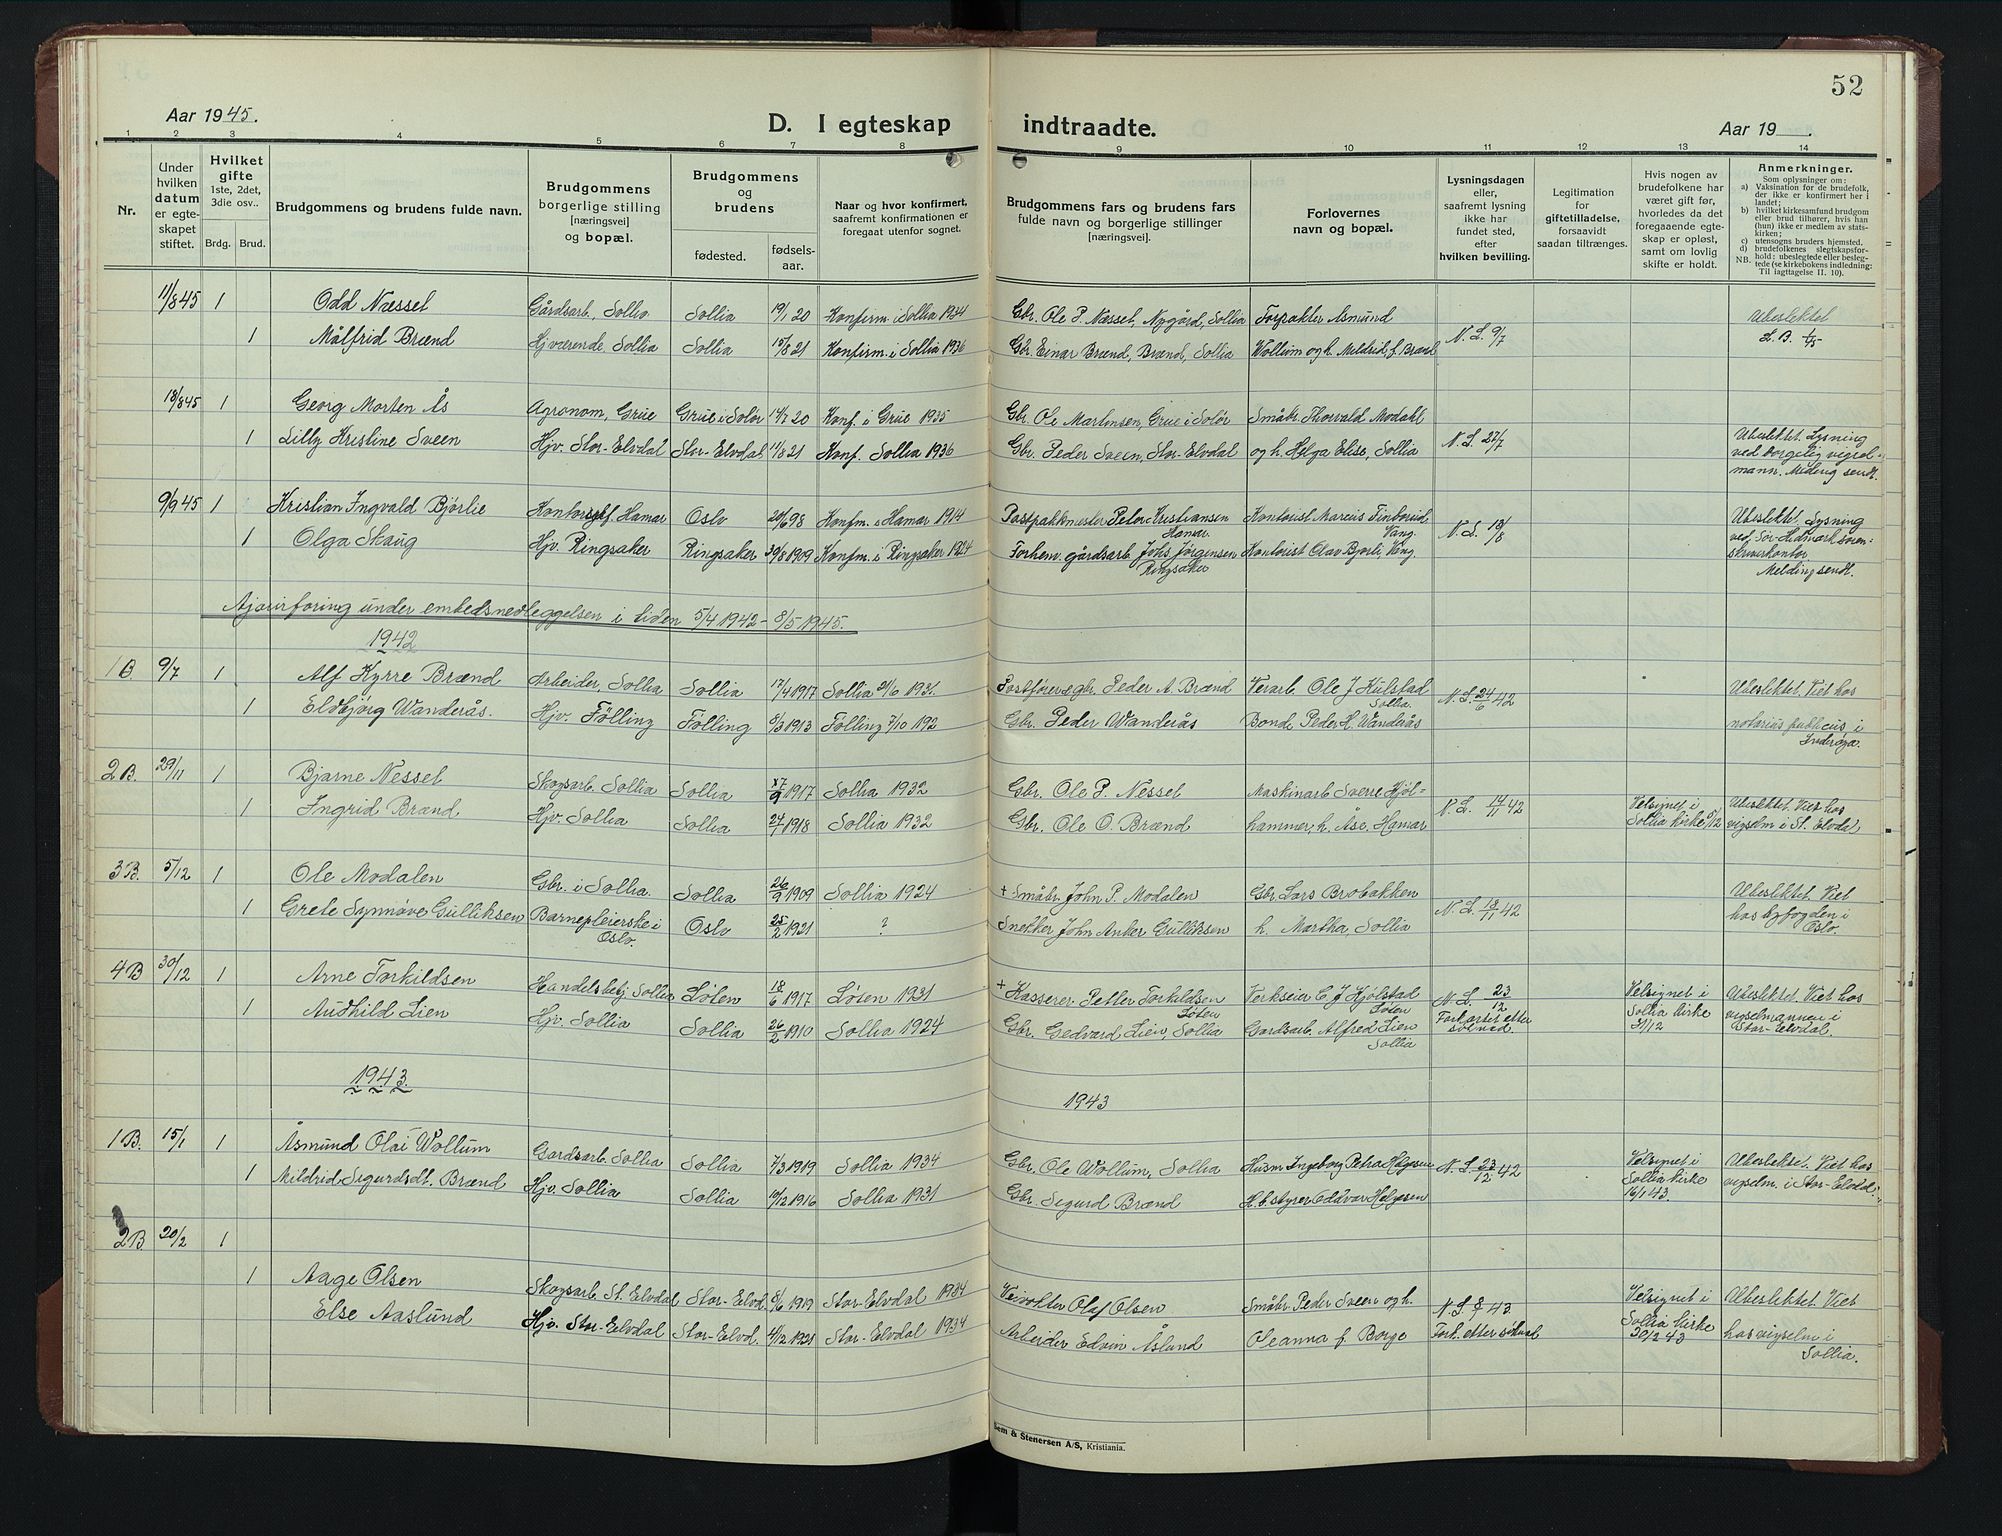 52
Aar 1945.
D. I egteskap indtraadte.
Aar 19 .
1 2 3 4 5 6 7 8 9 10 11 12 13 14
Nr.
Under hvilken datum er egteskapet stiftet.
Hvilket gifte 1ste, 2det, 3die osv..
Brdg. Brud.
Brudgommens og brudens fulde navn.
Brudgommens borgerlige stilling [næringsvei] og bopæl.
Brudgommens og brudens
fødested. fødselsaar.
Naar og hvor konfirmert, saafremt konfirmationen er foregaat utenfor sognet.
Brudgommens fars og brudens fars fulde navn og borgerlige stillinger [næringsvei].
Forlovernes navn og bopæl.
Lysningsdagen eller, saafremt lysning ikke har fundet sted, efter hvilken bevilling.
Legitimation for giftetilladelse, forsaavidt saadan tiltrænges.
Hvis nogen av brudefolkene har været gift før, hvorledes da det foregaaende egteskap er opløst, samt om lovlig skifte er holdt.
Anmerkninger.
Som oplysninger om:
a) Vaksination for de brudefolk, der ikke er konfirmert her i landet;
b) hvilket kirkesamfund brudgom eller brud tilhører, hvis han (hun) ikke er medlem av statskirken;
c) utensogns bruders hjemsted.
d) brudefolkenes slegtskapsforhold: ubeslegtede eller beslegtede (se kirkebokens indledning: Til iagttagelse II. 10).
NB.
11/8 45 1 Odd Næsset Gårdsarb., Sollia Sollia 19/1 20 Konfirm. i Sollia 1934 Gbr. Ole P. Næsset, Nygård, Sollia Forpakter Asmund Ubeslektet
1 Målfrid Brænd Hjværende, Sollia Sollia 15/8 21 Konfirm. i Sollia 1936 Gbr. Einar Brænd, Brænd, Sollia Wollum og h. Mildrid f. Brænd N. L. 9/7 L. B. 1/45
18/8 45 1 Georg Morten Ås Agronom, Grue Grue i Solør 14/7 20 Konf. i Grue 1935 Gbr. Ole Martinsen, Grue i Solør Småbr. Thorvald Modahl
1 Lilly Kristine Sveen Hjv. Stor-Elvdal Stor-Elvdal 11/8 21 Konf. Sollia 1936 Gbr. Peder Sveen, Stor-Elvdal og h. Helga Elise, Sollia N. L. 27/7 Ubeslektet. Lysning ved borgelig vigselmann. Melding sendt.
9/9 45 1 Kristian Ingvald Bjørlie Hamar Oslo 20/6 98 Konfm. i Hamar 1914 Postpakkmester Peter Kristiansen Hamar Kontorist Marcus Vang.
1 Olga Skaug Hjv. Ringsaker Ringsaker 30/8 1909 Konfm. i Ringsaker 1924 Forhenv. gårdsarb. Johs. Jørgensen Ringsaker Kontorist Olav Bjørli, Vang N. L. 18/8 Ubeslektet. Lysning ved Sør-Hedmark sorenskriverkontor Melding sendt.
Ajourføring under embedsnedleggelsen i tiden 5/4 1942 - 8/5 1945.
1942
1 B 9/7 1 Alf Kyrre Brænd Arbeider, Sollia Sollia 17/4 1917 Sollia 21/6 1931 Postfører, gbr. Peder A. Brænd Verarb. Ole J Hulstad Sollia
1 Eldbjørg Wanderås. Hjv. Følling Følling 8/3 1913 Følling 7/10 192 Gbr. Peder Wanderås Bonde Peder H. Wanderås N. L. 24/6 42 Ubeslektet. Viet hos notarius publicus i Inderøya.
2 B. 29/11 1 Bjarne Nesset Skogsarb. Sollia Sollia 17/9 1917 Sollia 1932 Gbr. Ole P. Nesset Maskinarb Sverre Hjøl-
1 Ingrid Brænd Hjv. Sollia Sollia 24/1 1918 Sollia 1932 Gbr. Ole O. Brænd hammer, h. Åse, Hamar N. L. 14/11 42 Velsignet i Sollia kirke, 6/12 Ubeslektet. Viet hos vigselm i St. Elvdal
3 B. 5/12 1 Ole Modalen Gbr. i Sollia. Sollia 26/9 1909 Sollia 1924 + Småbr. John P. Modalen Gbr. Lars Brobakken
1 Grete Synnøve Gulliksen Barnepleierske i Oslo. Oslo 25/2 1921 ? Snekker John Anker Gulliksen h. Martha, Sollia N. L. 18/11 42 Ubeslektet. Viet hos byfogden i Oslo.
4 B 30/12 1 Arne Torkildsen Handelsbetj. Sollia Løten 18/6 1917 Løten 1931 + Kasserer Petter Torkildsen Løten Verkseier C. J. Hjølstad Løten
1 Audhild Lien Hjv. Sollia Sollia 26/2 1910 Sollia 1924 Gbr. Gedvard Lien, Sollia Gardsarb. Alfred Lien Sollia N. L. 23/12 Forkortet etter søknad. Velsignet i Sollia kirke 31/12 Ubeslektet. Viet hos vigselmannen i Stor-Elvdal.
1943. 1943
1 B. 15/1 1 Åsmund Olai Wollum Gardsarb. Sollia Sollia 7/3 1919 Sollia 1934 Gbr. Ole Wollum, Sollia Husm Ingeborg Petra Helgesen
1 Mildrid Sigurdsdt. Brænd Hjv. Sollia Sollia 19/12 1916 Sollia 1931 Gbr. Sigurd Brænd H.b.styrer Eddvar Helgesen N. L. 23/12 42 Velsignet i Sollia kirke 16/1 43 Ubeslektet. Viet hos vigselm. i Stor-Elvdal.
2 B 20/2 1
1 Aage Olsen Skogsarb. St. Elvdal Stor-Elvd. 8/6 1919 Stor-Elvdal 1934 Veivokter Olaf Olsen Småbr. Peder Sveen og h.
Else Aaslund Hjv. Stor-Elvdal Stor-Elvd. 4/12 1921 Stor-Elvdal 1934 Arbeider Edvin Åslund Oleanna f. Borge N. L. 43 Fork. etter søknad Velsignet i Sollia kirke 20/2 43 Ubeslektet. Viet hos vigselm i Sollia.
Sem & Stenersen A/S, Kristiania.